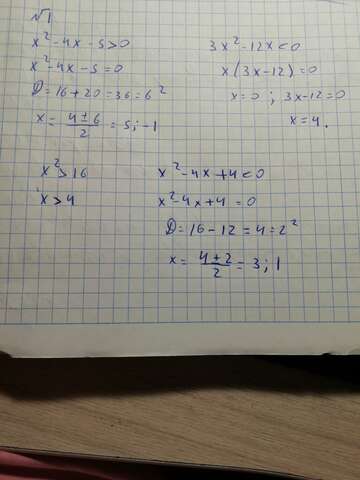 √1
x² - 4x - 5 > 0
x² - 4x - 5 = 0
D = 16 + 20 = 36 = 6²
x = (4 ± 6)/2 = 5; -1
3x² - 12x < 0
x(3x - 12) = 0
x = 0 ; 3x - 12 = 0
x = 4.
x² > 16
x > 4
x² - 4x + 4 < 0
x² - 4x + 4 = 0
D = 16 - 12 = 4 = 2²
x = (4 ± 2)/2 = 3; 1